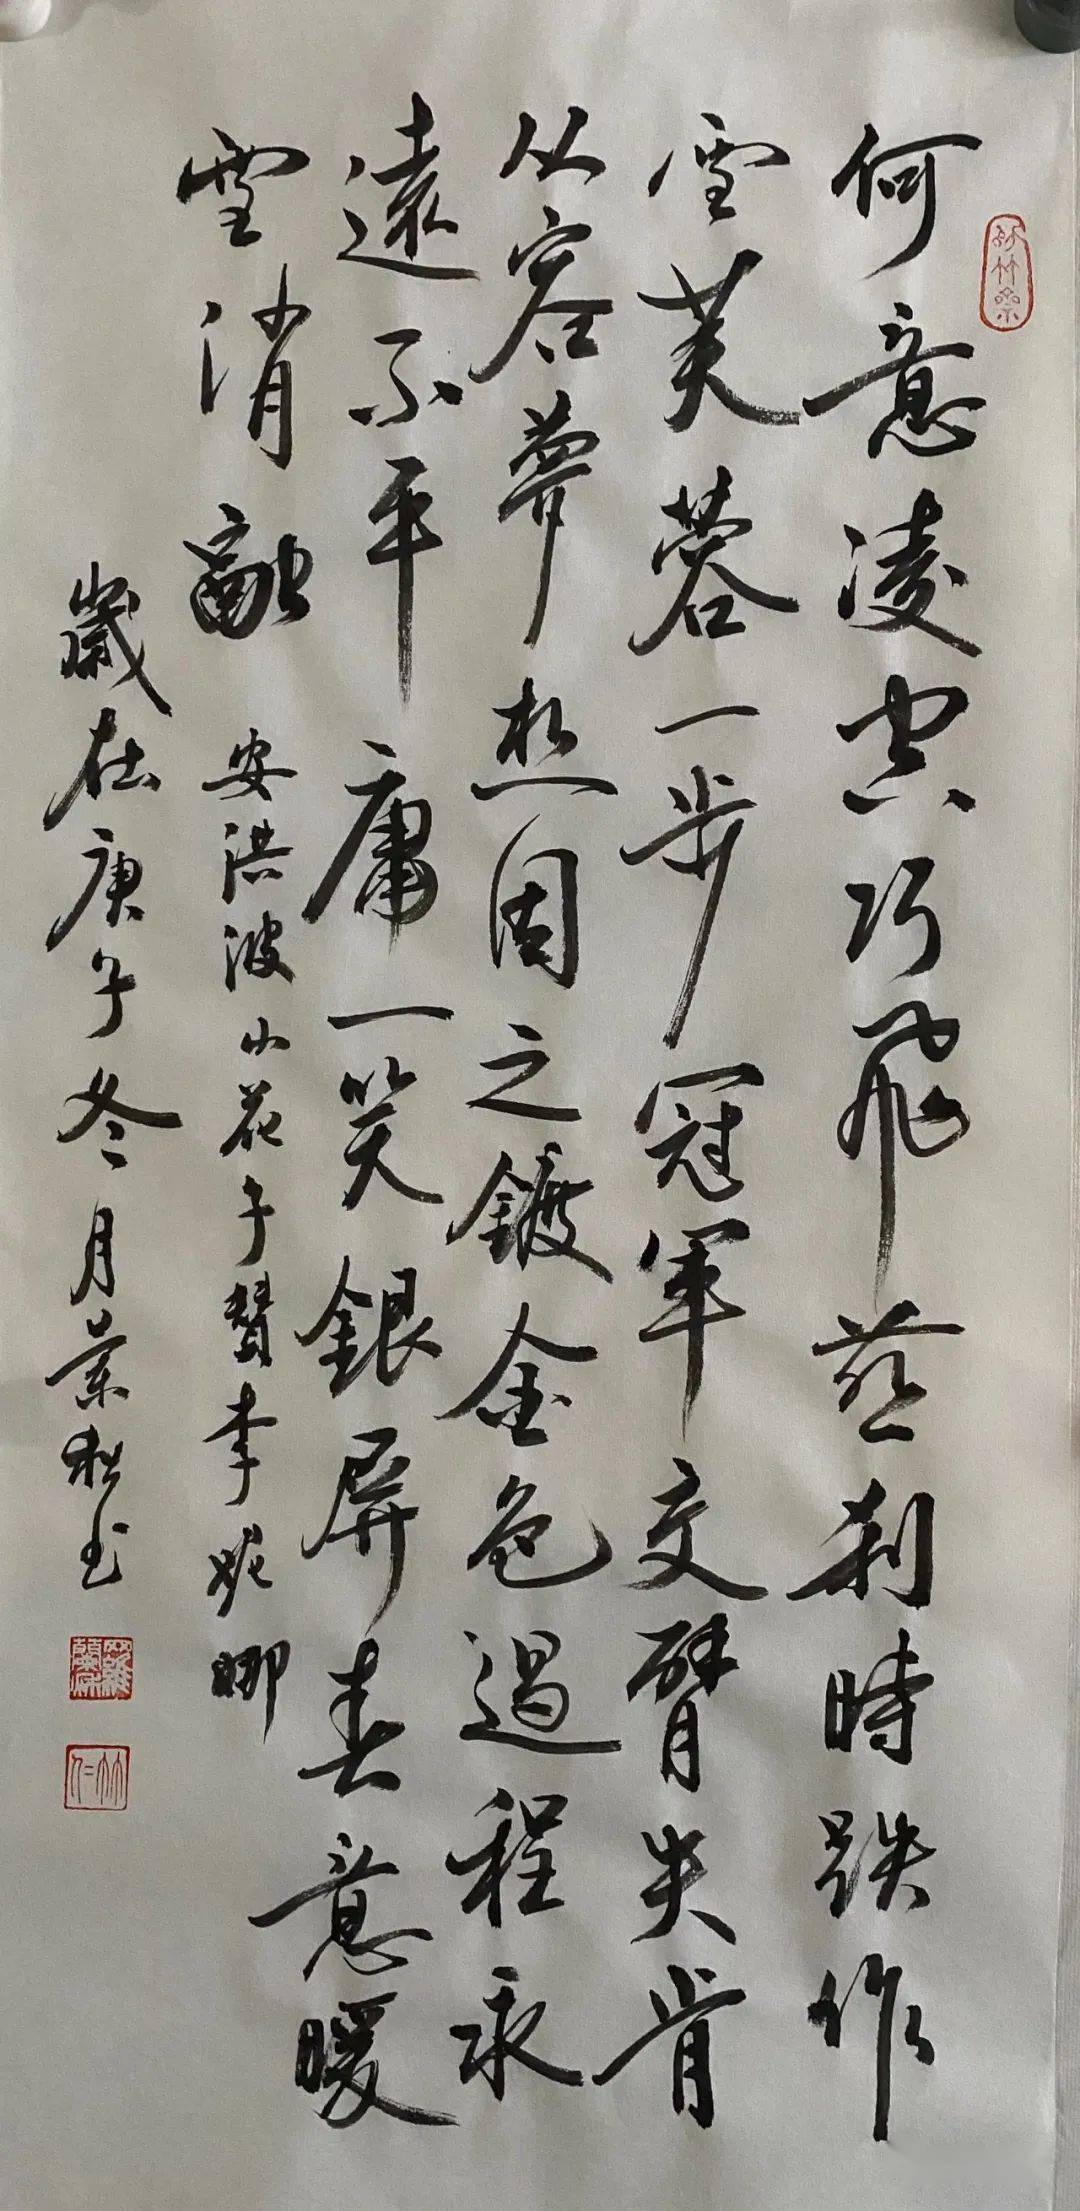 何意凌空巧飛燕刹時跌作
雪芙蓉一步冠軍交臂失肯
从容夢想因之鍍金色過程永
遠不平庸一笑銀屏春意暖
雪消融
安洪波山花子贊李妮娜
歲在庚子冬月書